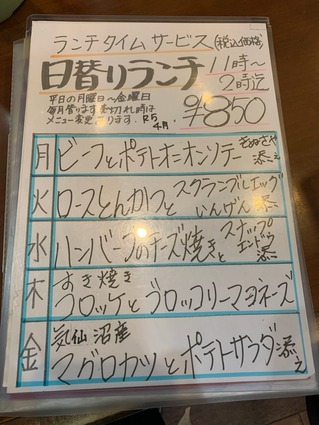 ランチタイムサービス(税込価格)
日替りランチ 11時〜
2時迄
平日の月曜日〜金曜日
毎月替ります 売切れ時は
メニュー変更あります。R5 4月
¥850
月 ビーフとポテトオニオンソテー きぬさや添え
火 ロースとんかつとスクランブルエッグ いんげん添
水 ハンバーグのチーズ焼きと スナップエンドウ添
木 すき焼き
コロッケとブロッコリーマヨネーズ
金 気仙沼産
マグロカツとポテトサラダ添え